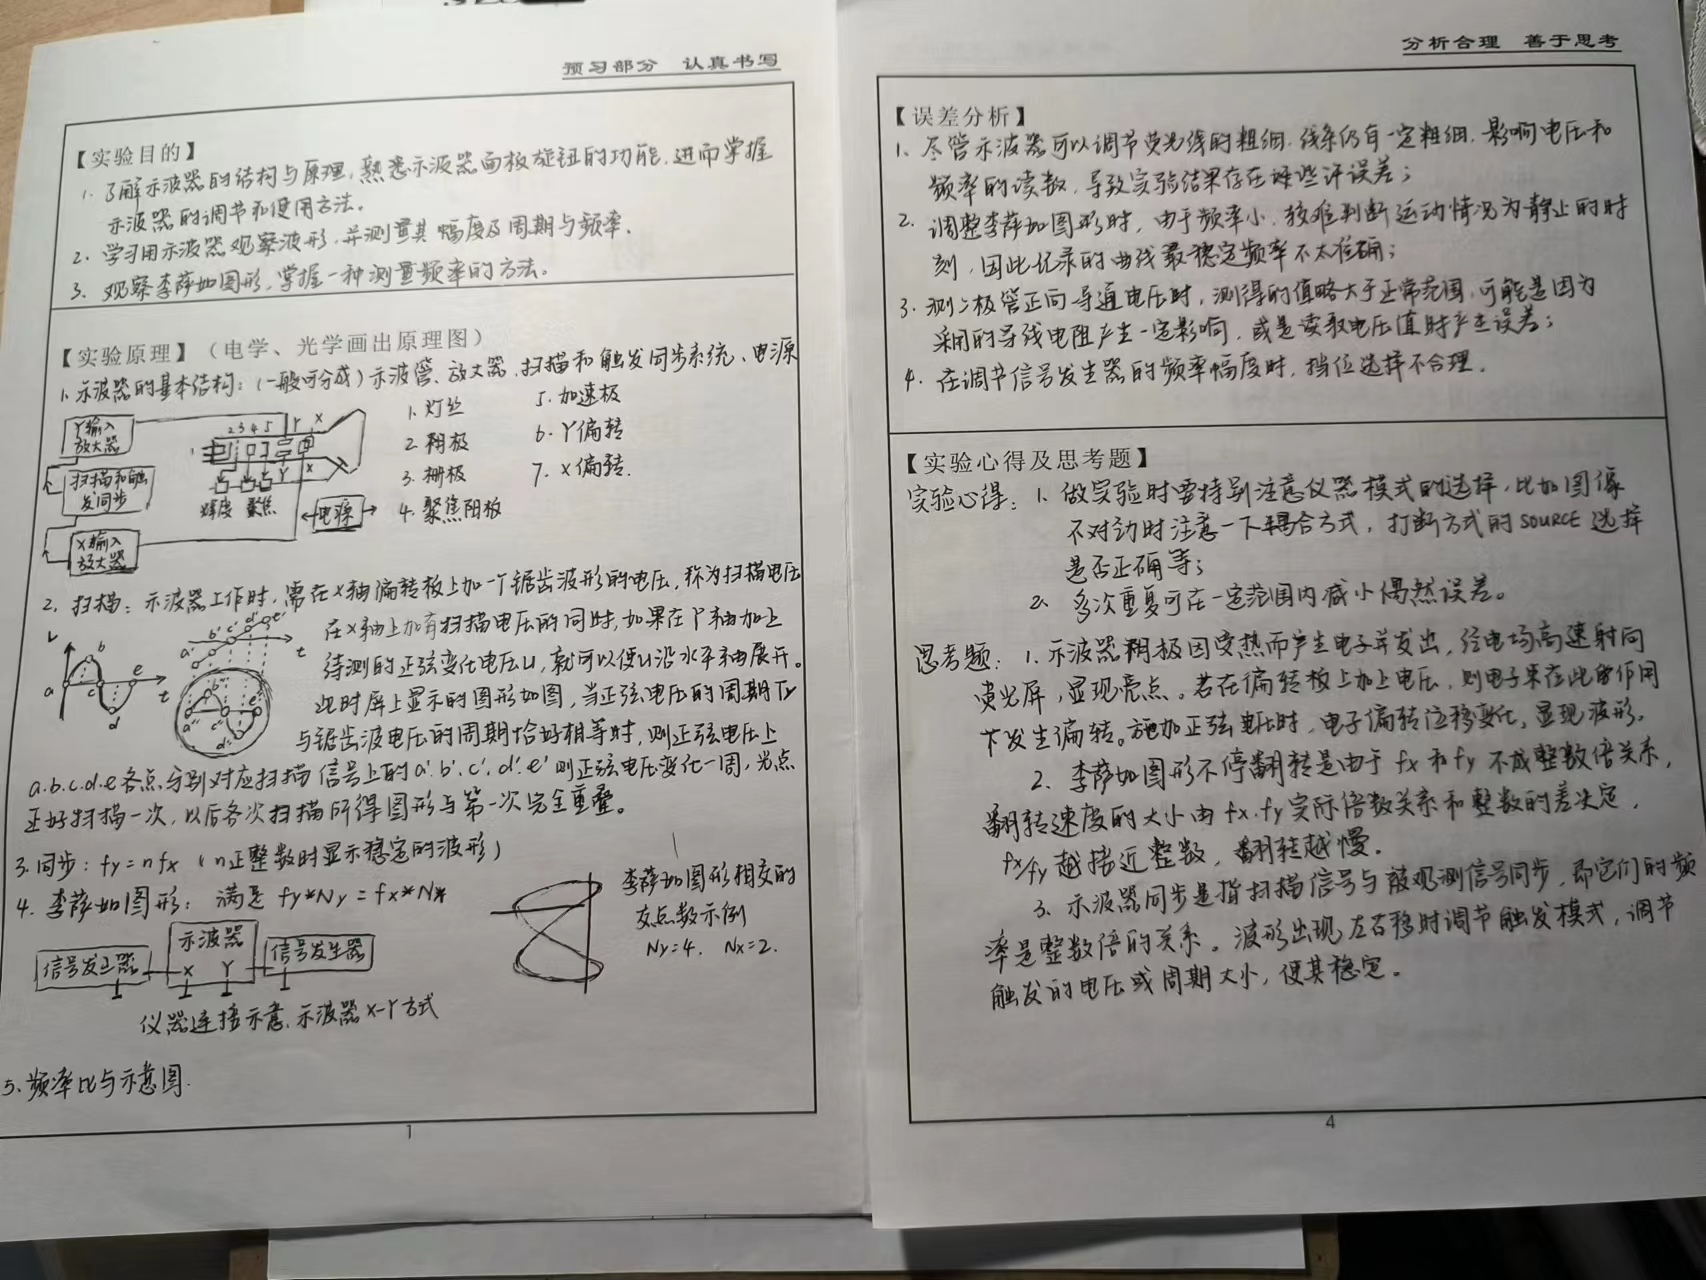 预习部分 认真书写
【实验目的】
1. 了解示波器的结构与原理,熟悉示波器面板旋钮的功能,进而掌握
示波器的调节和使用方法。
2. 学习用示波器观察波形,并测量其幅度及周期与频率.
3. 观察李萨如图形,掌握一种测量频率的方法.
【实验原理】(电学、光学画出原理图)
1. 示波器的基本结构:(一般可分成)示波管、放大器、扫描和触发同步系统、电源
Y输入
放大器
扫描和触
发同步
X输入
放大器
2 3 4 5 Y X
1
Y X
辉度 聚焦
电源
1. 灯丝
2. 阴极
3. 栅极
4. 聚焦阴极
5. 加速极
6. Y偏转
7. X偏转.
2. 扫描:示波器工作时,需在X轴偏转板上加一个锯齿波形的电压,称为扫描电压
a b c d e t
a' b' c' d' e' t
a'' b'' c'' d'' e''
在X轴上加有扫描电压的同时,如果在Y轴加上
待测的正弦变化电压u,就可以使u沿水平轴展开。
此时屏上显示的图形如图,当正弦电压的周期Ty
与锯齿波电压的周期恰好相等时,则正弦电压上
a.b.c.d.e各点分别对应扫描信号上的a'.b'.c'.d'.e'则正弦电压变化一周,光点
正好扫描一次,以后各次扫描所得图形与第一次完全重叠。
3. 同步:fy=nfx(n正整数时显示稳定的波形)
4. 李萨如图形:满足 fy*Ny=fx*Nx
信号发生器
示波器
X Y
信号发生器
仪器连接示意.示波器X-Y方式
李萨如图形相交的
交点数示例
Ny=4. Nx=2.
5. 频率比与示意图.
1
分析合理 善于思考
【误差分析】
1. 尽管示波器可以调节荧光线的粗细.线条仍有一定粗细.影响电压和
频率的读数,导致实验结果存在些许误差;
2. 调整李萨如图形时,由于频率小.较难判断运动情况为静止的时
刻,因此记录的曲线最稳定频率不太准确;
3. 测二极管正向导通电压时,测得的值略大于正常范围,可能是因为
采用的导线电阻产生一定影响,或是读取电压值时产生误差;
4. 在调节信号发生器的频率幅度时,挡位选择不合理.
【实验心得及思考题】
实验心得:1. 做实验时需特别注意仪器模式的选择,比如图像
不对劲时注意一下耦合方式,打断方式的SOURCE选择
是否正确等;
2. 多次重复可在一定范围内减小偶然误差。
思考题:1. 示波器阴极因受热而产生电子并发出,经电场高速射向
荧光屏,显现亮点。若在偏转板上加上电压,则电子束在此的作用
下发生偏转。施加正弦电压时,电子偏转位移变化,显现波形.
2. 李萨如图形不停翻转是由于fx和fy不成整数倍关系,
翻转速度的大小由fx.fy实际倍数关系和整数的差决定,
fx/fy越接近整数,翻转越慢.
3. 示波器同步是指扫描信号与被观测信号同步,即它们的频
率是整数倍的关系。波形出现左右移时调节触发模式,调节
触发的电压或周期大小,使其稳定。
4